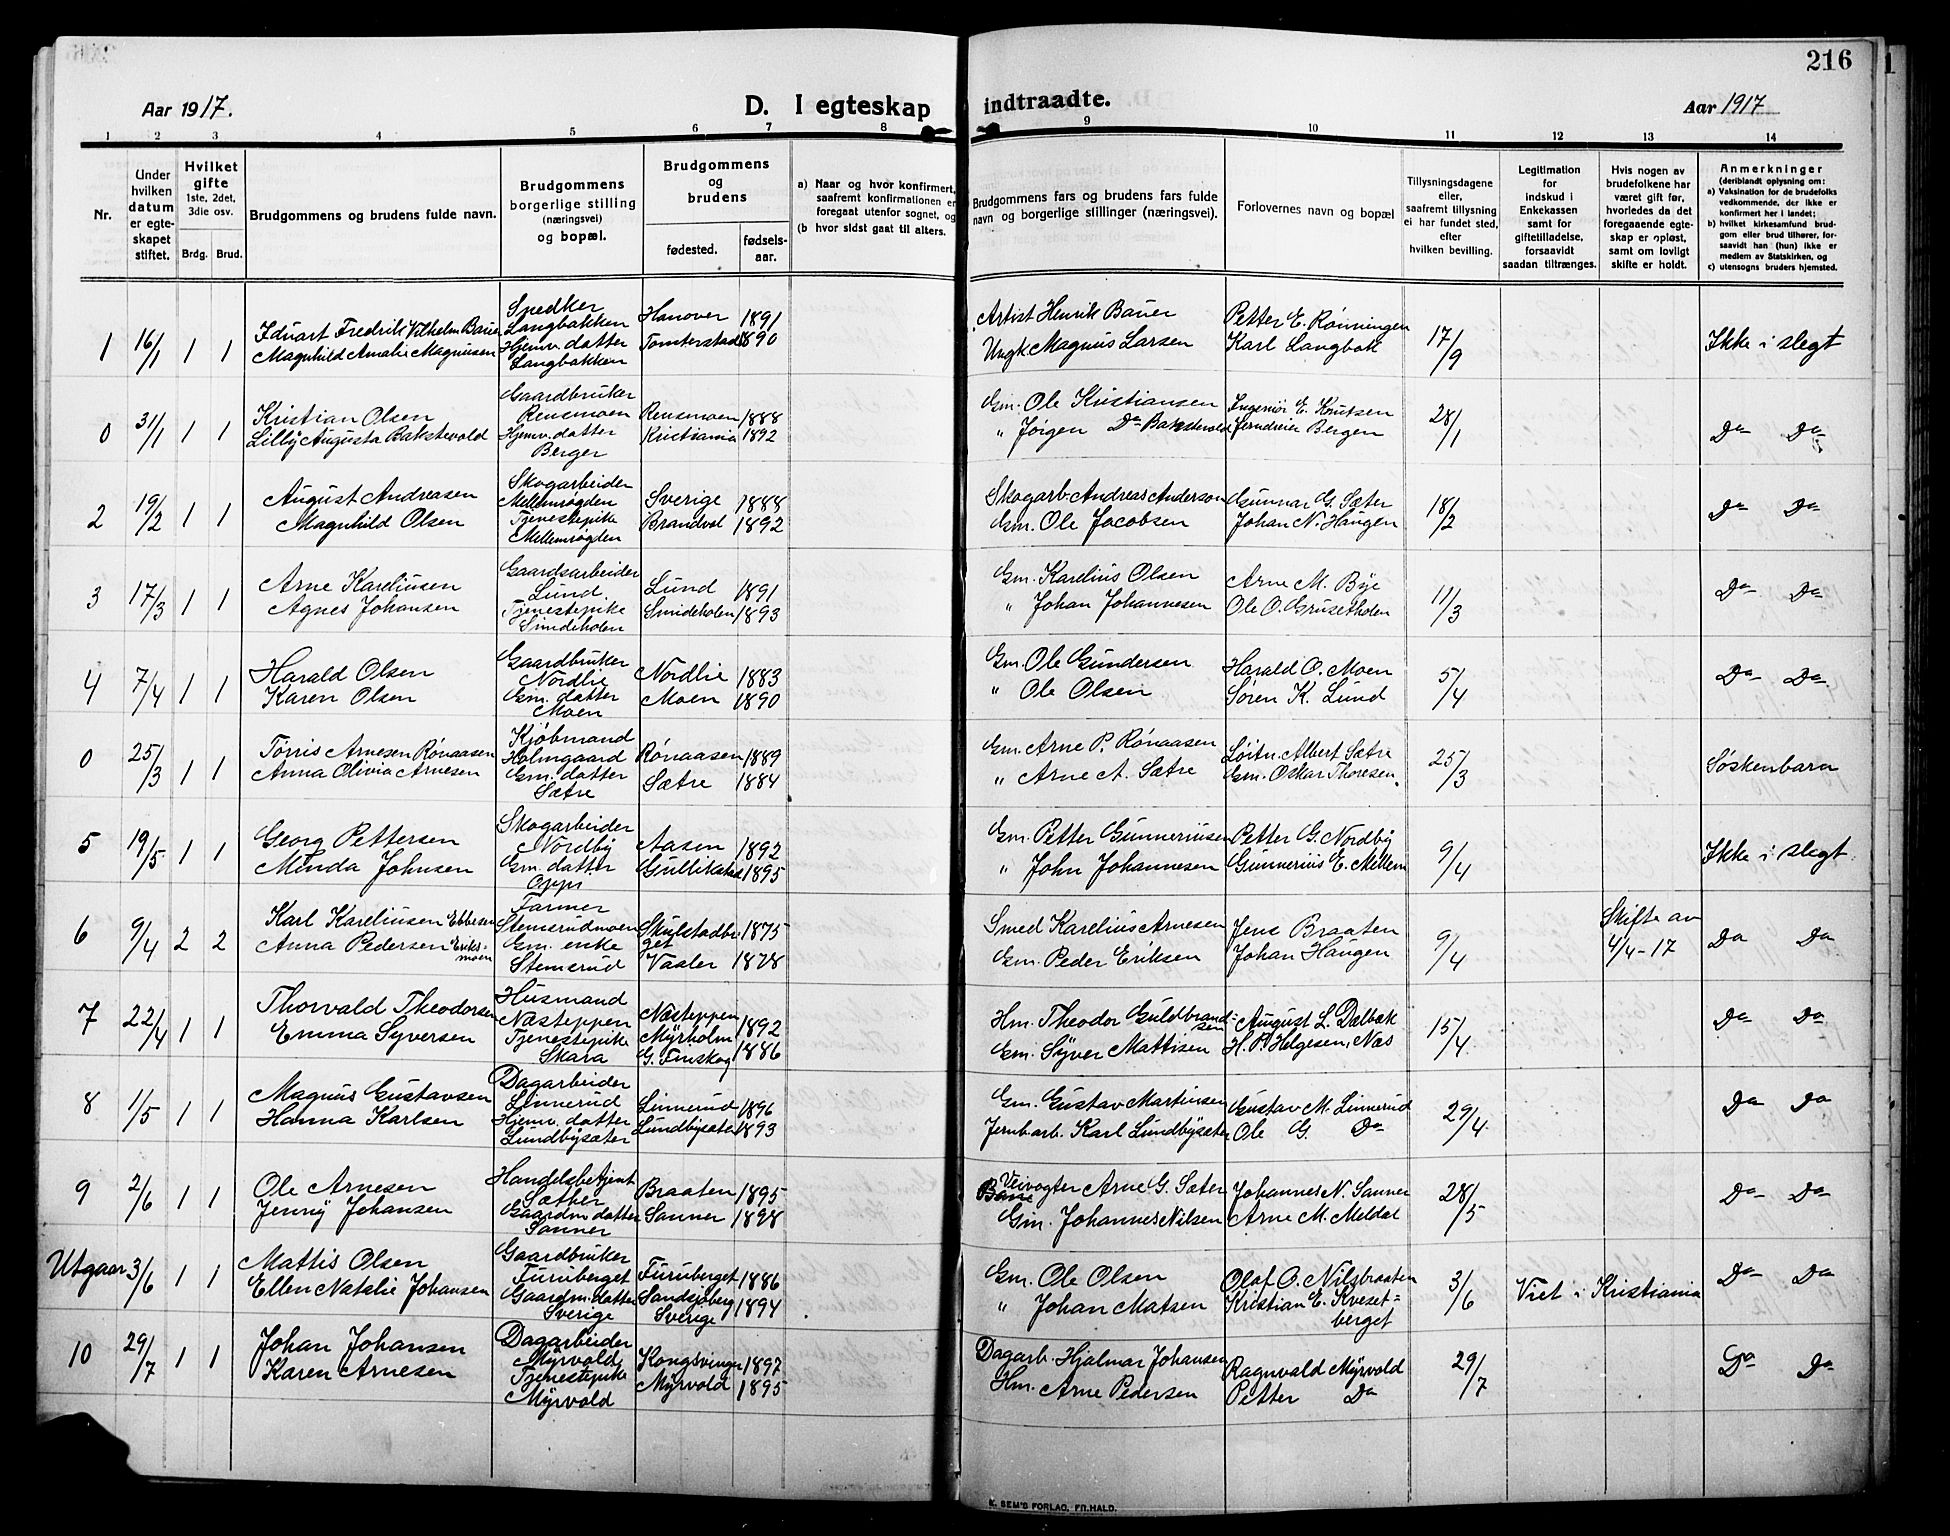 216
Aar 1917.
D. I egteskap indtraadte.
Aar 1917
1 2 3 4 5 6 7 8 9 10 11 12 13 14
Nr.
Under hvilken datum er egteskapet stiftet.
Hvilket gifte 1ste, 2det, 3die osv.
Brdg. Brud.
Brudgommens og brudens fulde navn.
Brudgommens borgerlige stilling (næringsvei) og bopæl.
Brudgommens og brudens
fødested. fødselsaar.
a) Naar og hvor konfirmert, saafremt konfirmationen er foregaat utenfor sognet, og
(b hvor sidst gaat til alters.
Brudgommens fars og brudens fars fulde navn og borgerlige stillinger (næringsvei).
Forlovernes navn og bopæl
Tillysningsdagene eller, saafremt tillysning ei har fundet sted, efter hvilken bevilling.
Legitimation for indskud i Enkekassen samt for giftetilladelse, forsaavidt saadan tiltrænges.
Hvis nogen av brudefolkene har været gift før, hvorledes da det foregaaende egteskap er opløst, samt om lovligt skifte er holdt.
Anmerkninger (deriblandt oplysning om: a) Vaksination for de brudefolks vedkommende, der ikke er konfirmert her i landet; b) hvilket kirkesamfund brudgom eller brud tilhører, forsaavidt han (hun) ikke er medlem av Statskirken, og c) utensogns bruders hjemsted.
1 16/1 1 1 Eduart Fredrik Vilhelm Bauer Langbakken Hanover 1891 Artist Henrik Bauer Petter E. Rønningen 17/9 Ikke i slegt
Magnhild Amalie Magnusen Hjemv. datter Langbakken Tomterstad 1890 Ungk. Magnus Larsen Karl Langbak
0 31/1 1 1 Kristian Olsen Gaardbruker Rensmoen Rensmoen 1888 Gm. Ole Kristiansen Ingeniør E. Knutsen 28/1 Do Do
Lilly Augusta Bakstevold Hjemv. datter Berger Kristiania 1892 " Jørgen Do Bakstevold Bergen
2 19/2 1 1 August Andreasen Skogarbeider Mellemrøgden Sverige 1888 Skogarb. Andreas Anderson Gunnar G. Sæter 18/2 Do Do
Magnhild Olsen Tjenestepike Mellemrøgden Brandvol 1892 Gm. Ole Jacobsen Johan N. Haugen
3 17/3 1 1 Arne Kareliusen Gaardsarbeider Lund Lund 1891 Gm. Karelius Olsen Arne M. Bye 11/3 Do Do
Agnes Johansen Tjenestepike Smideholen Smideholen 1893 " Johan Johannesen Ole O. Grusetholen
4 7/4 1 1 Harald Olsen Gaardbruker Nordlie Nordlie 1883 Gm. Ole Gundersen Harald O. Moen 5/4 Do Do
Karen Olsen Gm. datter Moen Moen 1890 " Ole Olsen Søren K. Lund
0 25/3 1 1 Tørris Arnesen Rønaasen Kjøbmand Holmgaard Rønaasen 1889 Gm. Arne P. Rønaasen Løitn. Albert Sætre 25/3 Søskenbarn
Anna Olivia Arnesen Gm. datter Sætre Sætre 1884 " Arne A. Sætre Gm. Oskar Thoresen
5 19/5 1 1 Georg Pettersen Skogarbeider Nordby Aasen 1892 Gm. Petter Gunneriusen Petter G. Nordby 9/4 Ikke i slegt
Minda Johnsen Gm. datter Oppi Gullikstad 1895 " John Johannesen Gunnerius E. Mellem
6 9/4 2 2 Karl Kareliusen Ebbesen Farmer Stemerudmoen Skulstadberget 1875 Smed Karelius Arnesen Jens Braaten 9/4 Skifte av 4/4-17 Do Do
Anna Pedersen Eriksmoen Gm. enke Stemerud Vaaler 1878 Gm. Peder Eriksen Johan Haugen
7 22/4 1 1 Thorvald Theodorsen Husmand Næsteppen Næsteppen 1892 Hm. Theodor Guldbrandsen August L. Dælbæk 15/4 Do Do
Emma Syversen Tjenestepike Skara Myrholm G. Finskog 1886 Gm. Syver Mattisen H. P. Helgesen, Næs
8 1/5 1 1 Magnus Gustavsen Dagarbeider Linnerud Linnerud 1896 Gm. Gustav Martinsen Gustav M. Linnerud 29/4 Do Do
Hanna Karlsen Hjemv. datter Lundbysæter Lundbysæter 1893 Jernb.arb. Karl Lundbysæter Ole G. Do
9 2/6 1 1 Ole Arnesen Handelsbetjent Sæther Braaten 1895 Banevogter Arne G. Sæter Johannes N. Sanner 28/5 Do Do
Jenny Johansen Gaardm. datter Sanner Sanner 1898 Gm. Johannes Nilsen Arne M. Meldal
Utgaar 3/6 1 1 Mattis Olsen Gaardbruker Furuberget Furuberget 1886 Gm. Ole Olsen Olaf O. Nilsbraaten 3/6 Viet i Kristiania Do Do
Ellen Natalie Johansen Gaardm. datter Sverige Sandsjøberg Sverige 1894 " Johan Matsen Kristian E. Kvesetberget
10 29/7 1 1 Johan Johansen Dagarbeider Myrvold Kongsvinger 1892 Dagarb. Hjalmar Johansen Ragnvald Myrvold 29/7 Do Do
Karen Arnesen Tjenestepike Myrvold Myrvold 1895 Hm. Arne Pedersen Petter Do
K. SEM'S FORLAG, FR.HALD.